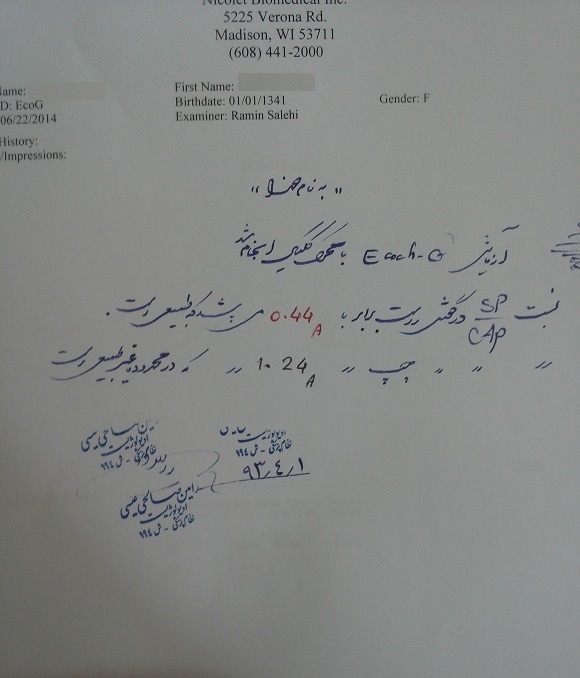 Nicolet Biomedical Inc.
5225 Verona Rd.
Madison, WI 53711
(608) 441-2000
Name:
First Name:
D: EcoG
Birthdate: 01/01/1341
Gender: F
06/22/2014
Examiner: Ramin Salehi
History:
/Impressions:
" به نام خدا "
ارزیابی Ecoch-G با محرک کلیک انجام شد
نسبت SP/CAP در گوش راست برابر با 0.44 A می باشد که طبیعی است.
" " " " چپ " 1.24 A " که در محدوده غیر طبیعی است
ادیولوژیست
نظام پزشکی - ش ۹۹۴
ادیولوژیست
نظام پزشکی - ش ۹۹۴
۹۳٫۴٫۱
رامین صالحی عیسی
ادیولوژیست
نظام پزشکی - ش ۹۹۴